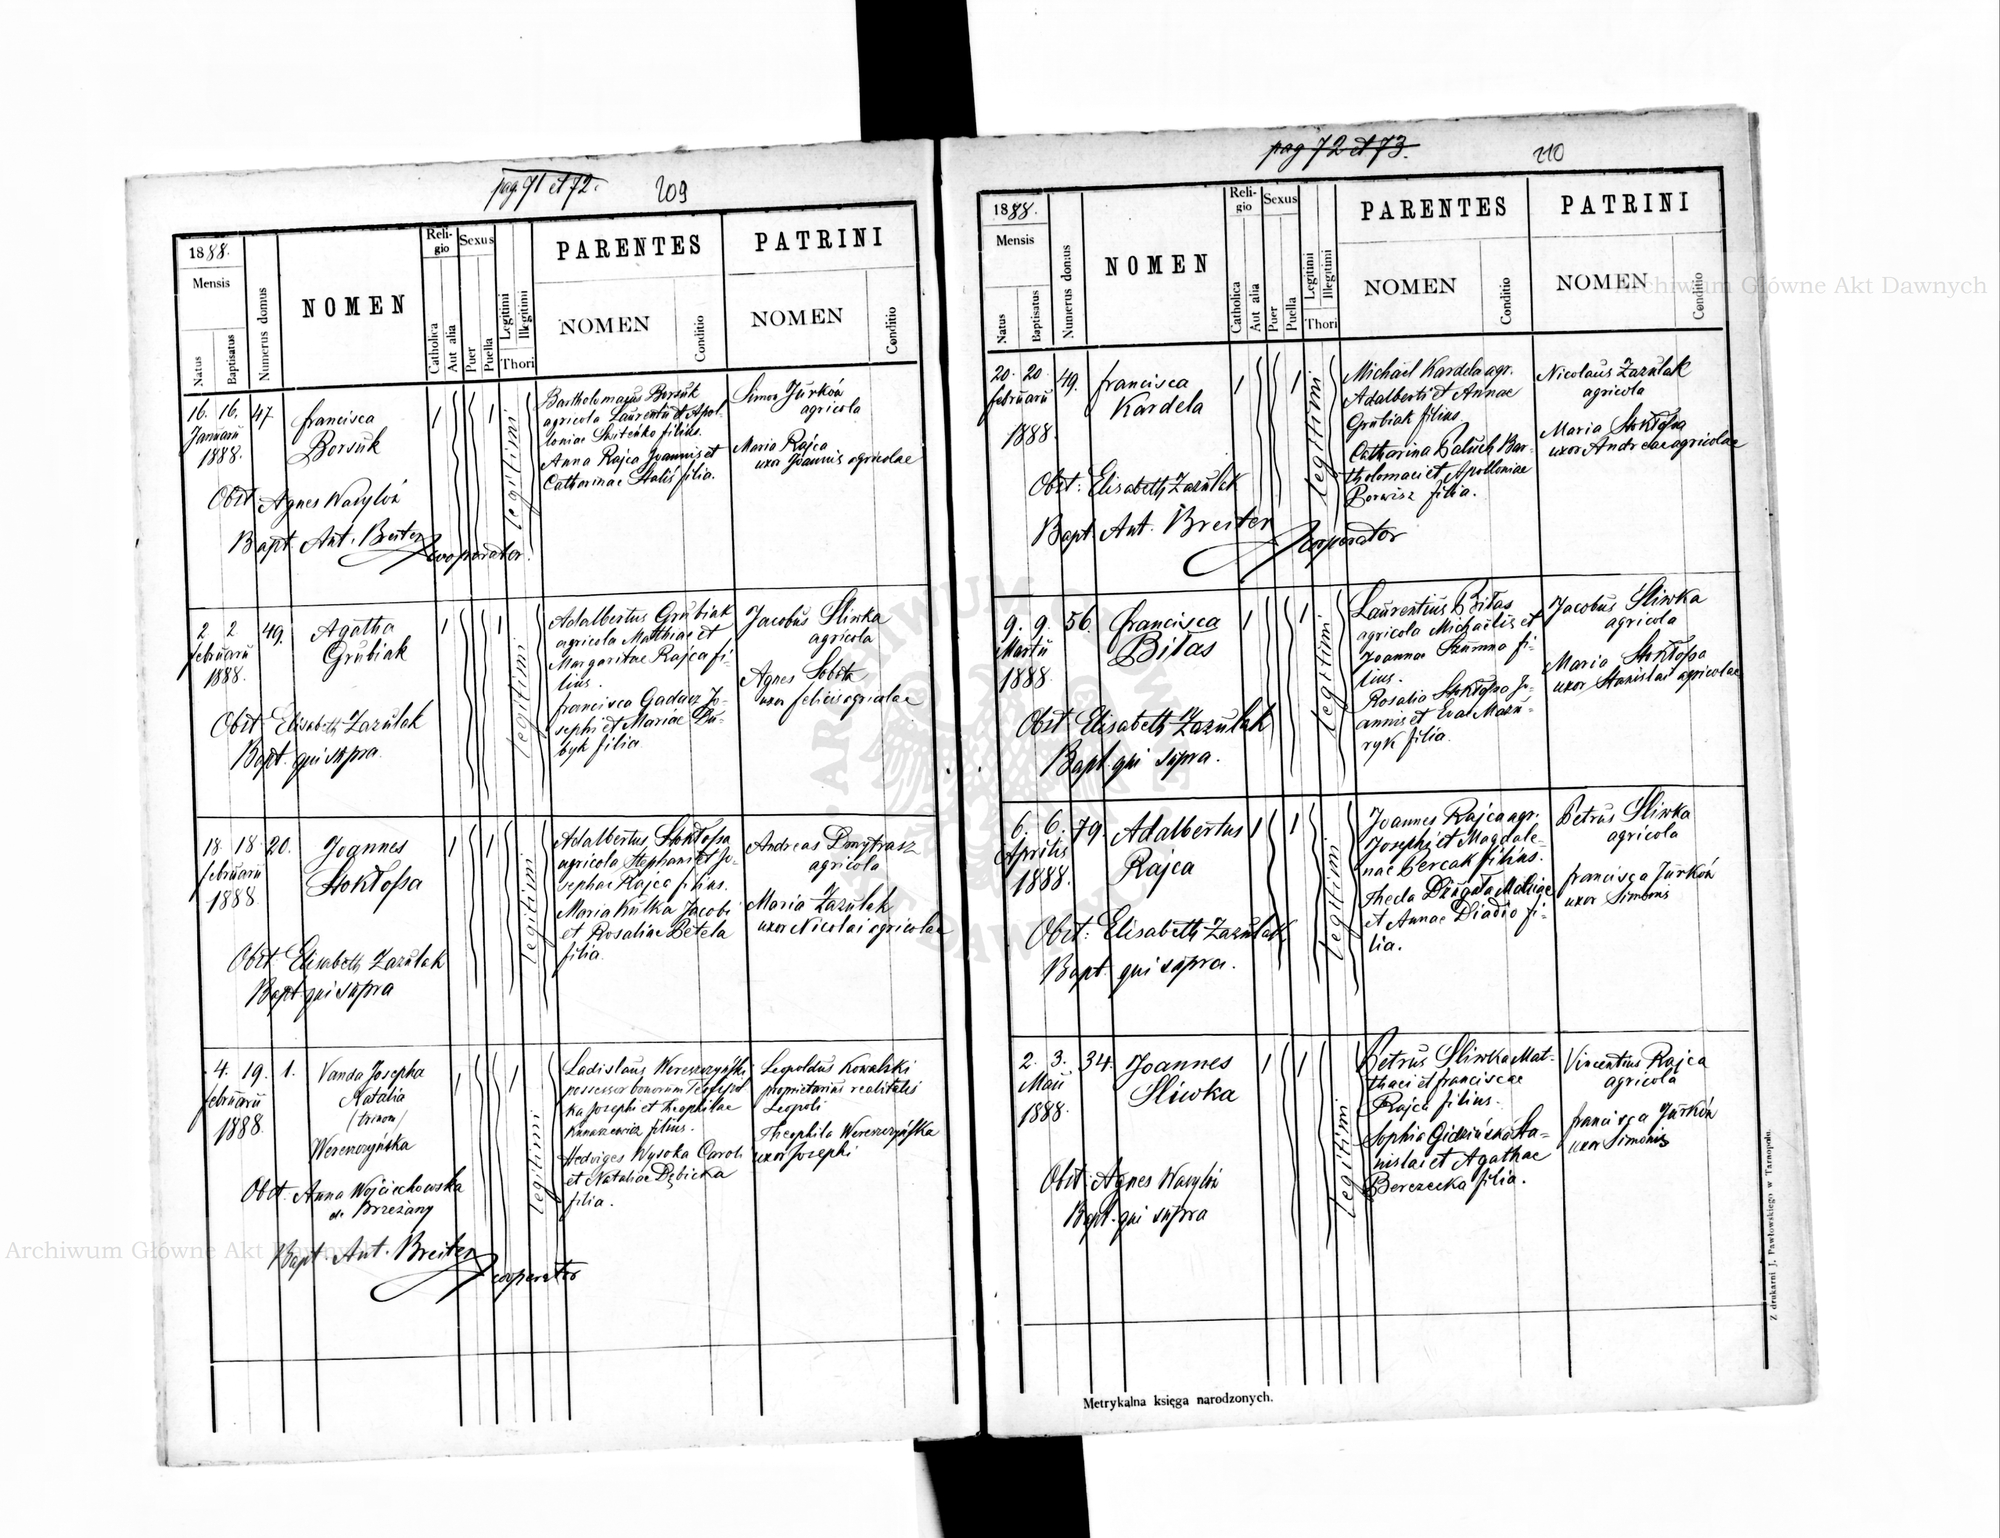 pag 71 et 72.
209
1888.
Mensis
Natus
Baptisatus
Numerus domus
NOMEN
Religio
Catholica
Aut alia
Sexus
Puer
Puella
Legitimi
Illegitimi
Thori
PARENTES
NOMEN
Conditio
PATRINI
NOMEN
Conditio
16. 16. 47. Francisca
Januarii
1888.
Borsuk
1 1
legitimi
Bartholomaeus Borsuk
agricola Laurentii et Apol-
loniae filius.
Anna Rajca Joannis et
Catharinae filia.
Simon Jurków
agricola
Maria Rajca
uxor Joannis agricolae
Obst. Agnes Wasylów
Bapt. Ant. Breiter cooperator.
2 2 49. Agatha
Februarii
1888.
Grubiak
1 1
legitimi
Adalbertus Grubiak
agricola Matthiae et
Margaritae Rajca fi-
lius.
Francisca Gadacz Jo-
sephi et Mariae Du-
byk filia
Jacobus Sliwka
agricola
Agnes Sobota
uxor Felicis agricolae
Obst. Elisabeth Zazulak
Bapt. qui supra.
18 18 20. Joannes
Februarii
1888.
Stokłossa
1 1
legitimi
Adalbertus Stokłossa
agricola Stephani et Jo-
sephae Rajca filius.
Maria Kulka Jacobi
et Rosaliae Betela
filia.
Andreas Dmytrasz
agricola
Maria Zazulak
uxor Nicolai agricolae
Obst. Elisabeth Zazulak
Bapt. qui supra
4. 19. 1. Vanda Josepha
Februarii
1888.
Natalia
(trinom)
Wereszczyńska
1 1
legitimi
Ladislaus Wereszczyński
possessor bonorum
ka Josephi et Theophilae
Kunaszewicz filius.
Hedviges Wysoka Caroli
et Nataliae Dębicka
filia.
Leopoldus Kowalski
proprietarius realitatis
Leopoli
Theophila Wereszczyńska
uxor Josephi
Obst. Anna Wojciechowska
de Brzeżany
Bapt. Ant. Breiter cooperator
pag 72 et 73.
210
1888.
Mensis
Natus
Baptisatus
Numerus domus
NOMEN
Religio
Catholica
Aut alia
Sexus
Puer
Puella
Legitimi
Illegitimi
Thori
PARENTES
NOMEN
Conditio
PATRINI
NOMEN
Conditio
20. 20. 49. Francisca
Februarii
Kardela
1888.
1 1
legitimi
Michael Kardela agr.
Adalberti et Annae
Grubiak filius.
Catharina Baluch Bar-
tholomaei et Apolloniae
Borwisz filia.
Nicolaus Zazulak
agricola
Maria Stokłossa
uxor Andreae agricolae
Obst: Elisabeth Zazulak
Bapt. Ant. Breiter cooperator
9. 9. 56. Francisca
Martii
1888.
Bitas
1 1
legitimi
Laurentius Bitas
agricola Michaelis et
Joannae Szumna fi-
lius.
Rosalia Stokłossa Jo-
annis et Evae Mazu-
ryk filia.
Jacobus Sliwka
agricola
Maria Stokłossa
uxor Stanislai agricolae
Obst. Elisabeth Zazulak
Bapt. qui supra.
6. 6. 79. Adalbertus
Aprilis
1888.
Rajca
1 1
legitimi
Joannes Rajca agr.
Josephi et Magdale-
nae Bercak filius.
Thecla
et Annae fi-
lia.
Petrus Sliwka
agricola
Francisca Jurków
uxor Simonis
Obst: Elisabeth Zazulak
Bapt. qui supra.
2. 3. 34. Joannes
Maii
1888.
Sliwka
1 1
legitimi
Petrus Sliwka Mat-
thaei et Franciscae
Rajca filius.
Sophia Sta-
nislai et Agathae
Berezecka filia.
Vincentius Rajca
agricola
Francisca Jurków
uxor Simonis
Obst. Agnes Wasylów
Bapt. qui supra
Metrykalna księga narodzonych.
Z drukarni J. Pawłowskiego w Tarnopolu.
Archiwum Główne Akt Dawnych
Archiwum Główne Akt Dawnych